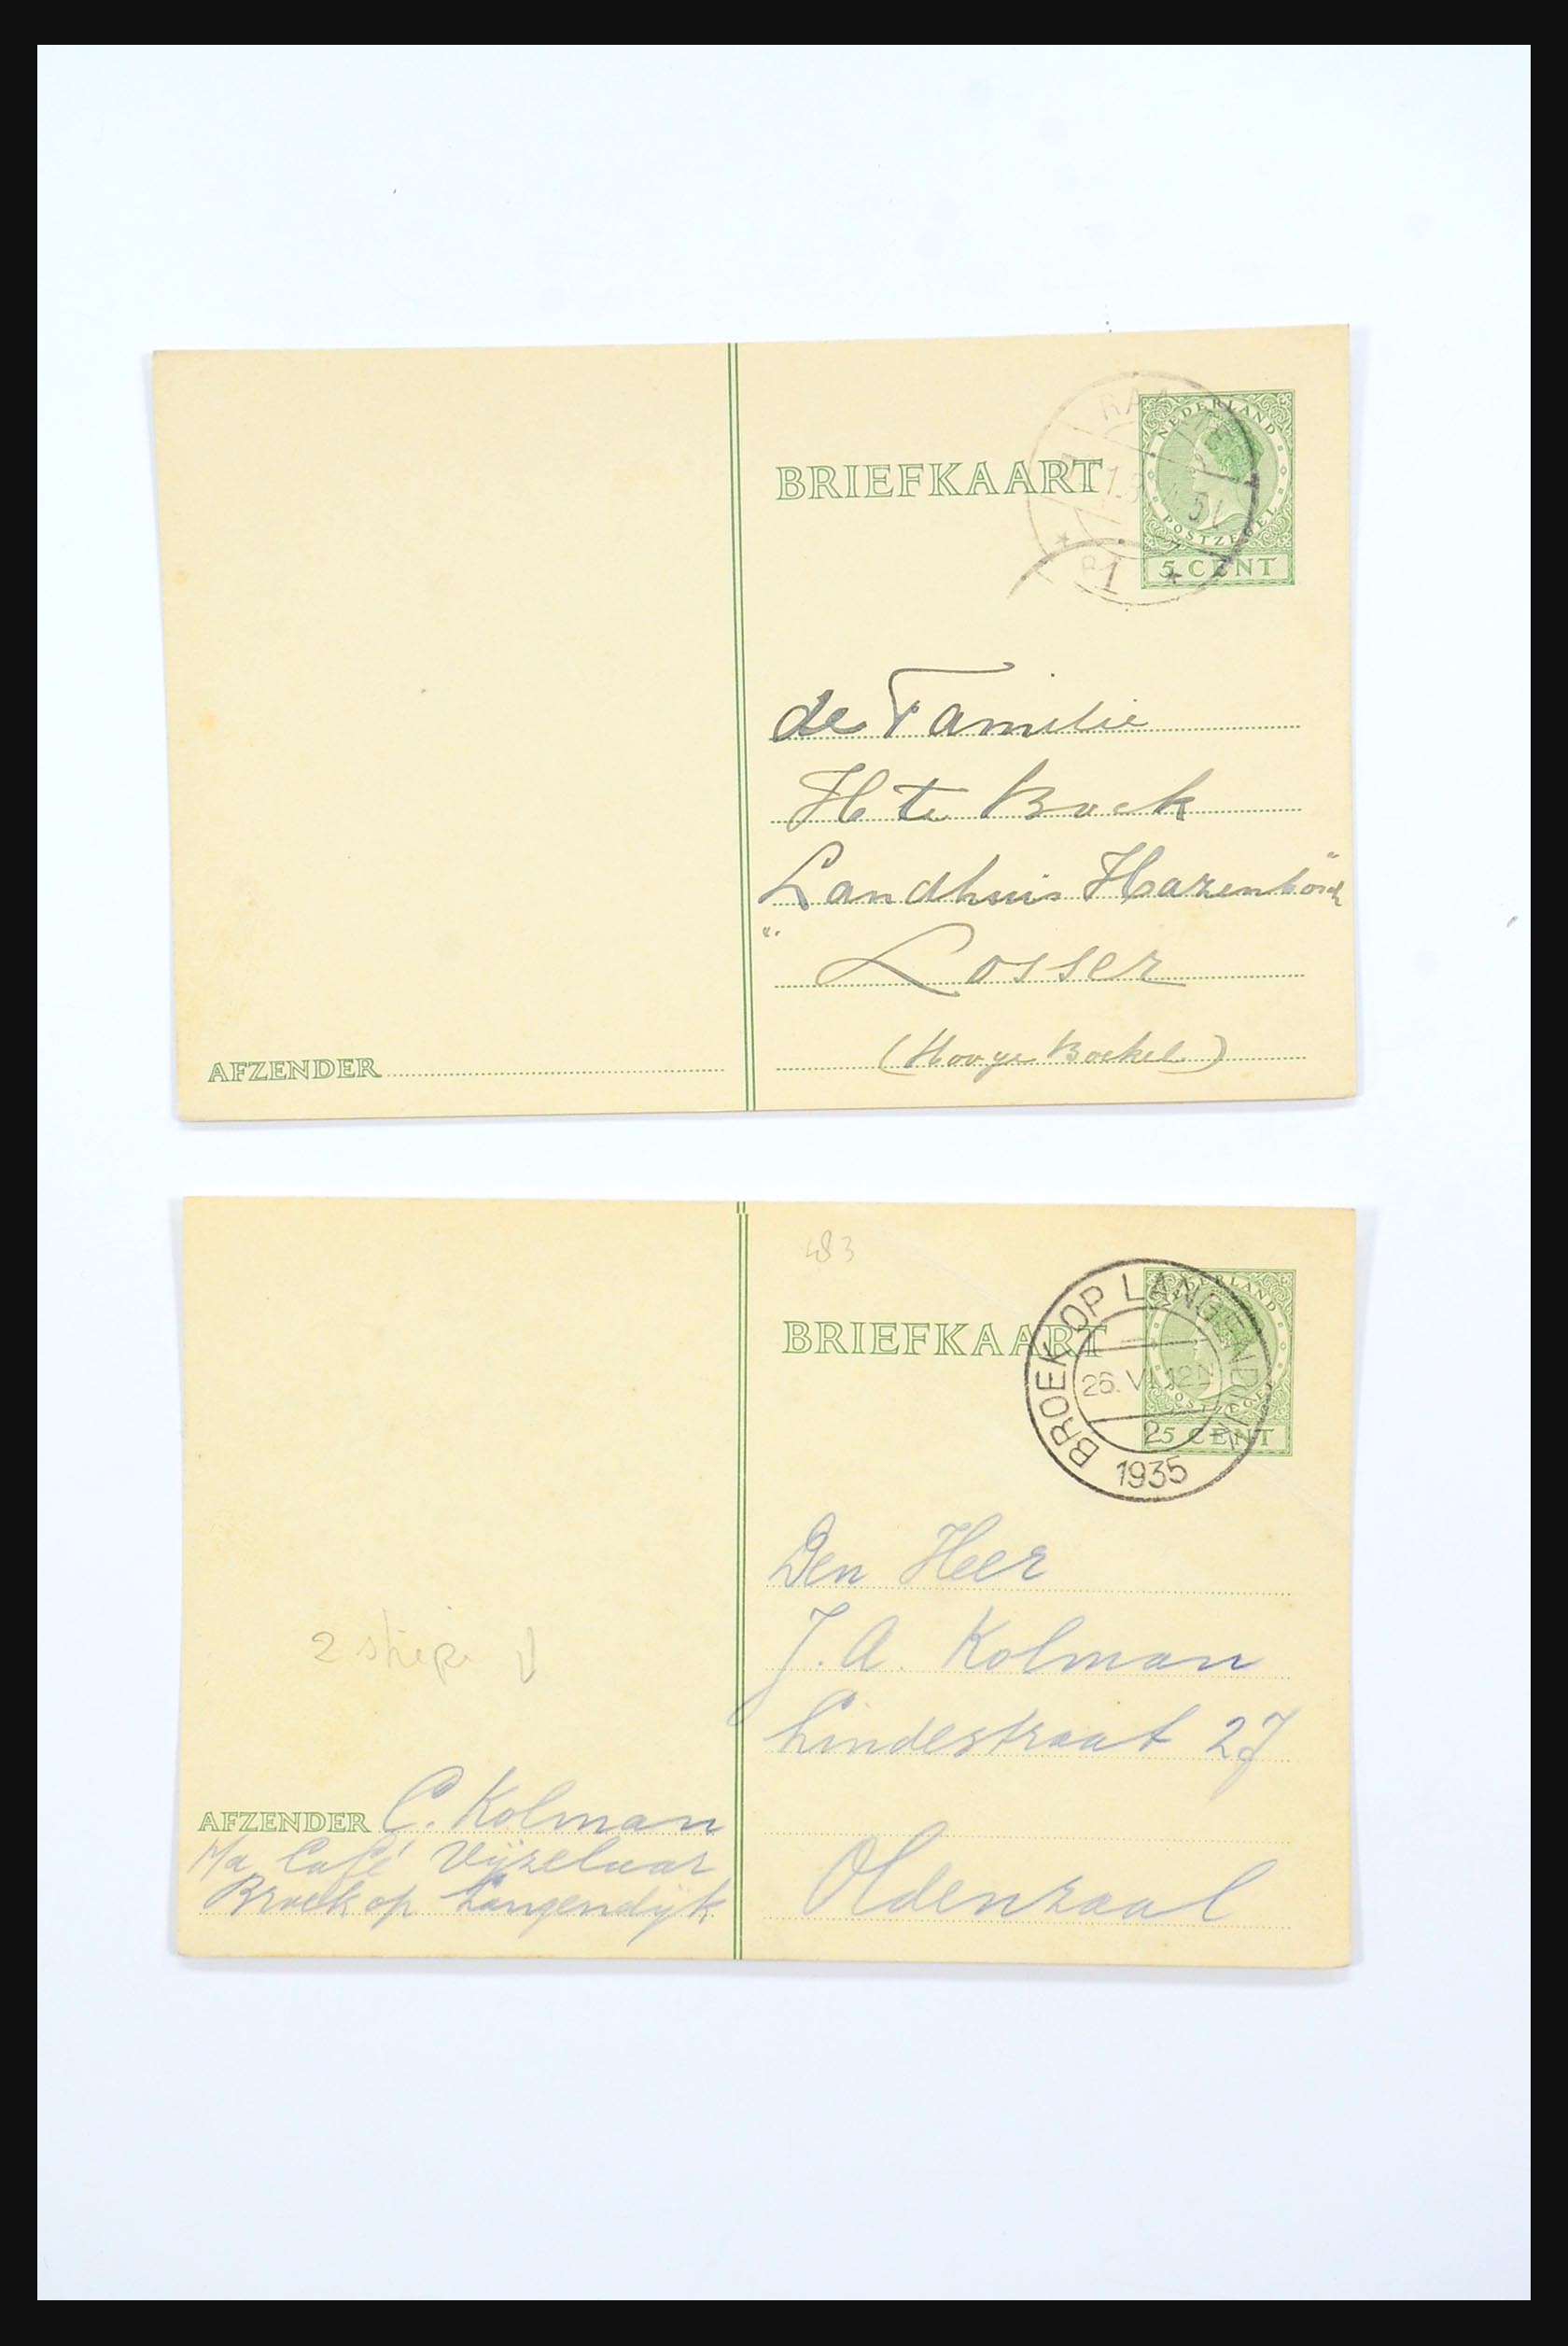 BRIEFKAART
NEDERLAND
POSTZEGEL
5 CENT
1
de Familie
H te Boek
Landhuis Hazenbosch
Losser
(Hooge Boekel)
AFZENDER
483
BRIEFKAART
NEDERLAND
POSTZEGEL
5 CENT
BROEK OP LANGENDIJK
26.VI.12N
2
1935
Den Heer
J. A. Kolman
Lindestraat 27
Oldenzaal
AFZENDER C. Kolman
P/a Café Vijzelaar
Broek op Langendijk